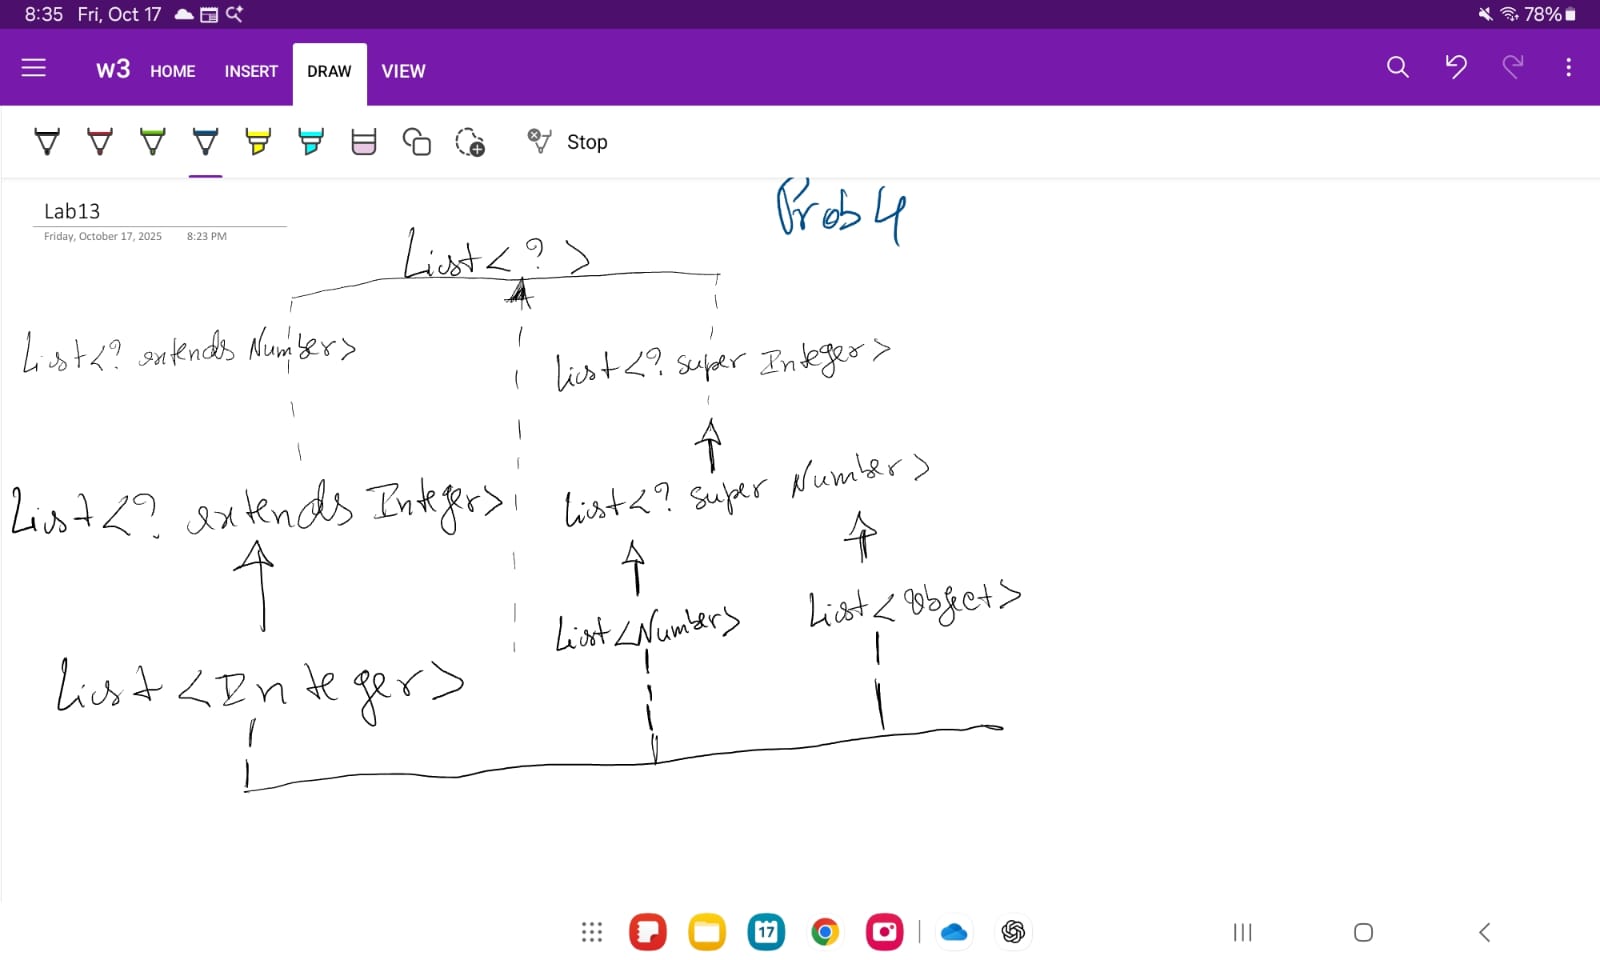 8:35 Fri, Oct 17 78%
w3 HOME INSERT DRAW VIEW
Stop
Lab13
Friday, October 17, 2025 8:23 PM
Prob 4
List<?>
List<? extends Number>
List<? super Integer>
List<? extends Integer>
List<? super Number>
List<Number>
List<Object>
List<Integer>
17